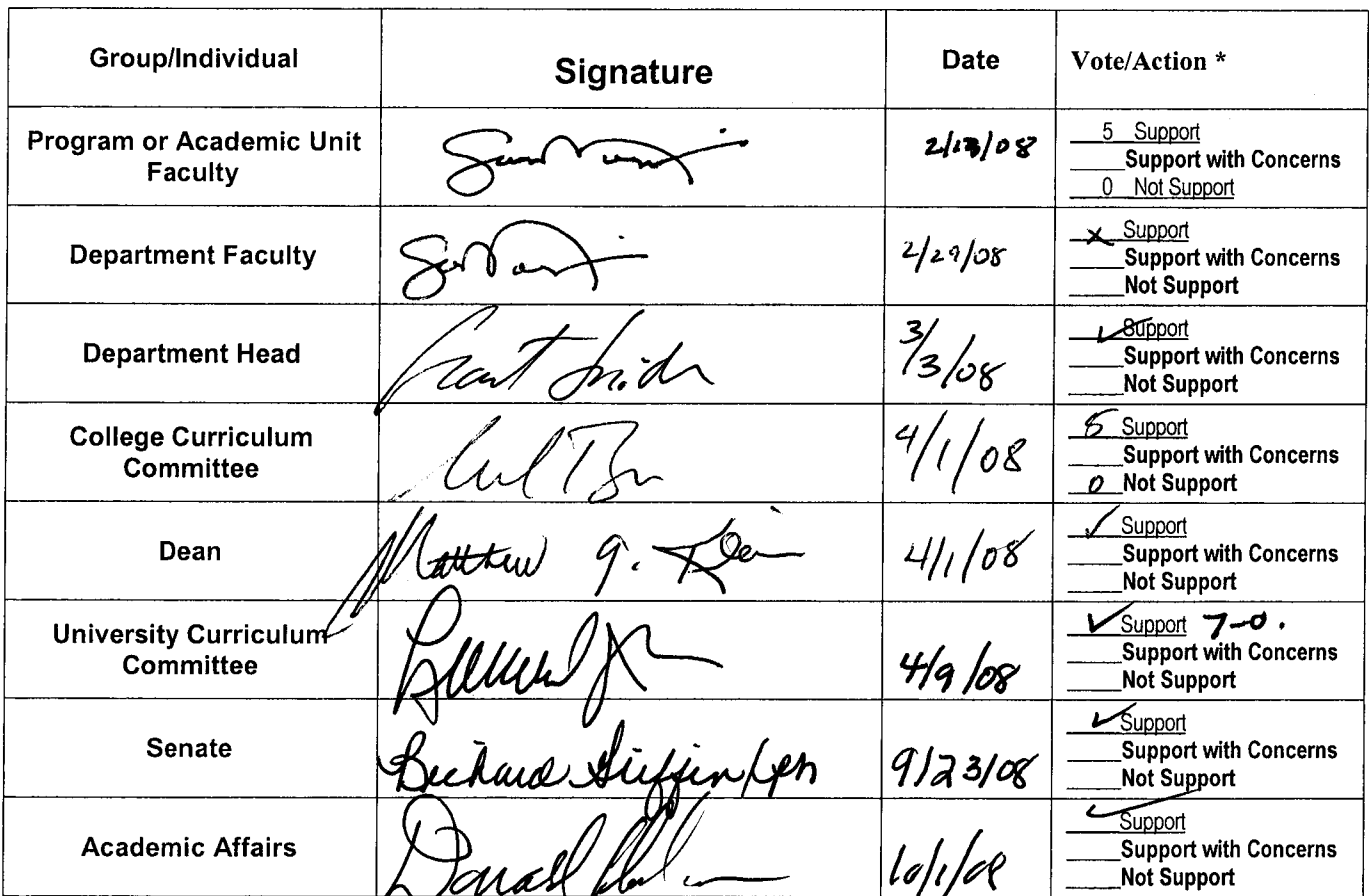 Group/Individual Signature Date Vote/Action *
Program or Academic Unit
Faculty
2/13/08
5 Support
Support with Concerns
0 Not Support
Department Faculty
2/29/08
x Support
Support with Concerns
Not Support
Department Head
3/3/08
✓ Support
Support with Concerns
Not Support
College Curriculum
Committee
4/1/08
5 Support
Support with Concerns
0 Not Support
Dean
Matthew G. Klein
4/1/08
✓ Support
Support with Concerns
Not Support
University Curriculum
Committee
4/9/08
✓ Support 7-0.
Support with Concerns
Not Support
Senate
Richard Griffin/
9/23/08
✓ Support
Support with Concerns
Not Support
Academic Affairs
Donald
10/1/08
✓ Support
Support with Concerns
Not Support